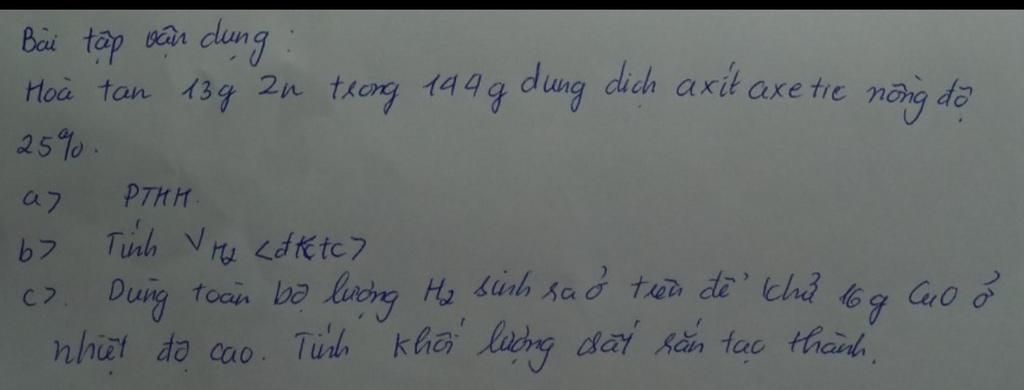 Bài tập vận dụng :
Hoà tan 13g Zn trong 144g dung dịch axít axetic nồng độ
25%.
a> PTHH.
b> Tính V H2 <đktc>
c>. Dùng toàn bộ lượng H2 sinh ra ở trên để khử 16g CuO ở
nhiệt độ cao. Tính khối lượng chất rắn tạo thành.